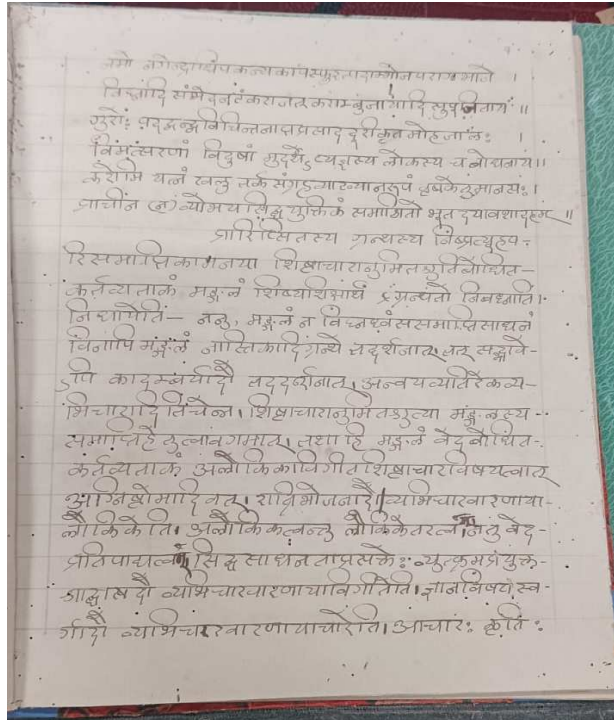 नमो नगेन्द्राधिपकन्यकापस्फुरत्पदाम्भोजपरागभाजे ।
विघ्नादिसंभेदनटंकराजत्कराम्बुनागादिसुपूजिताय ॥
गुरोः पदद्वन्द्वविचिन्तनाप्तप्रसाददूरीकृतमोहजालः ।
विमत्सराणां विदुषां मुदर्थेऽप्यज्ञस्य लोकस्य च बोधनाय ॥
करोमि यत्नं खलु तर्कसंग्रहव्याख्यानरूपं वृषकेतुमानसः ।
प्राचीन व्यीमयसिद्धयुक्तिकं समाश्रितो भूतदयावशादहम् ॥
प्रारिप्सितस्य ग्रन्थस्य विघ्नव्यूहप-
रिसमाप्तिकामनया शिष्टाचारानुमितश्रुतिबोधित-
कर्तव्यताकं मङ्गलं शिष्यशिक्षार्थं ग्रन्थतो निबध्नाति।
निधायेति- ननु, मङ्गलं न विघ्नध्वंससमाप्तिसाधनं
विनापि मङ्गलं नास्तिकादिग्रन्थे तद्दर्शनात्, तत् सद्भावे-
ऽपि कादम्बर्यादौ तददर्शनात्, अन्वयव्यतिरेकव्य-
भिचारादितिचेन्न। शिष्टाचारानुमितश्रुत्या मङ्गलस्य
समाप्तिहेतुत्वावगमात्। तथा हि मङ्गलं वेदबोधित-
कर्तव्यताकं अलौकिकाविगीतशिष्टाचारविषयत्वात्
अग्निष्टोमादिवत्। रात्रिभोजनादौ व्यभिचारवारणाया-
लौकिकेति। अलौकिकत्वन्तु लौकिकेतरत्वं नतु वेद-
प्रतिपाद्यत्वं सिद्धसाधनताप्रसक्तेः व्युत्क्रमप्रयुक्त-
श्राद्धादौ व्यभिचारवारणायाविगीतेति। ज्ञानविषये स्व-
र्गादौ व्यभिचारवारणायाचारेति। आचारः कृतिः